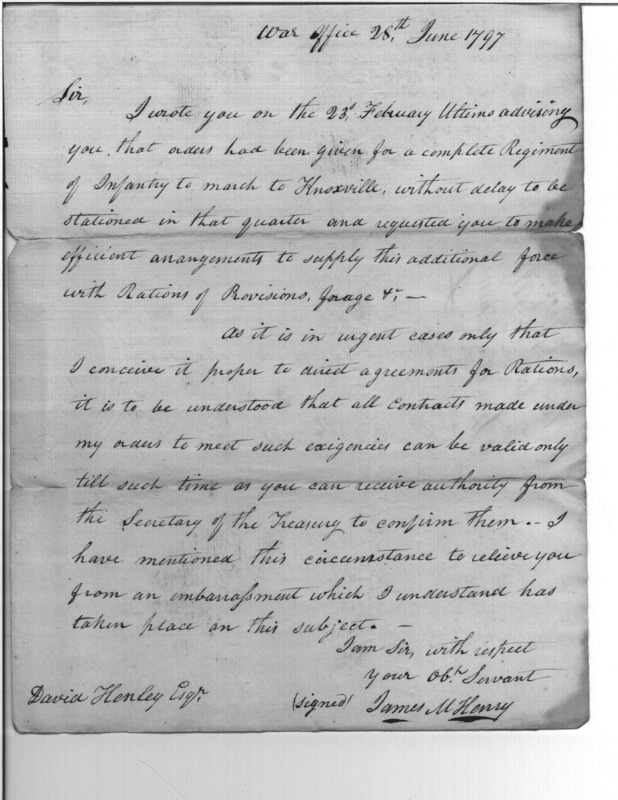 War Office 28.th June 1797
Sir,
I wrote you on the 23d. February Ultimo advising
you, that orders had been given for a complete Regiment
of Infantry to march to Knoxville, without delay to be
stationed in that quarter and requested you to make
efficient arrangements to supply this additional force
with Rations of Provisions, forage &c. —
As it is in urgent cases only that
I conceive it proper to direct agreements for Rations,
it is to be understood that all Contracts made under
my orders to meet such exigencies can be valid only
till such time as you can receive authority from
the Secretary of the Treasury to confirm them. - I
have mentioned this circumstance to relieve you
from an embarrassment which I understand has
taken place on this subject. —
I am Sir, with respect
your Obt. Servant
(signed) James McHenry
David Henley Esqr.